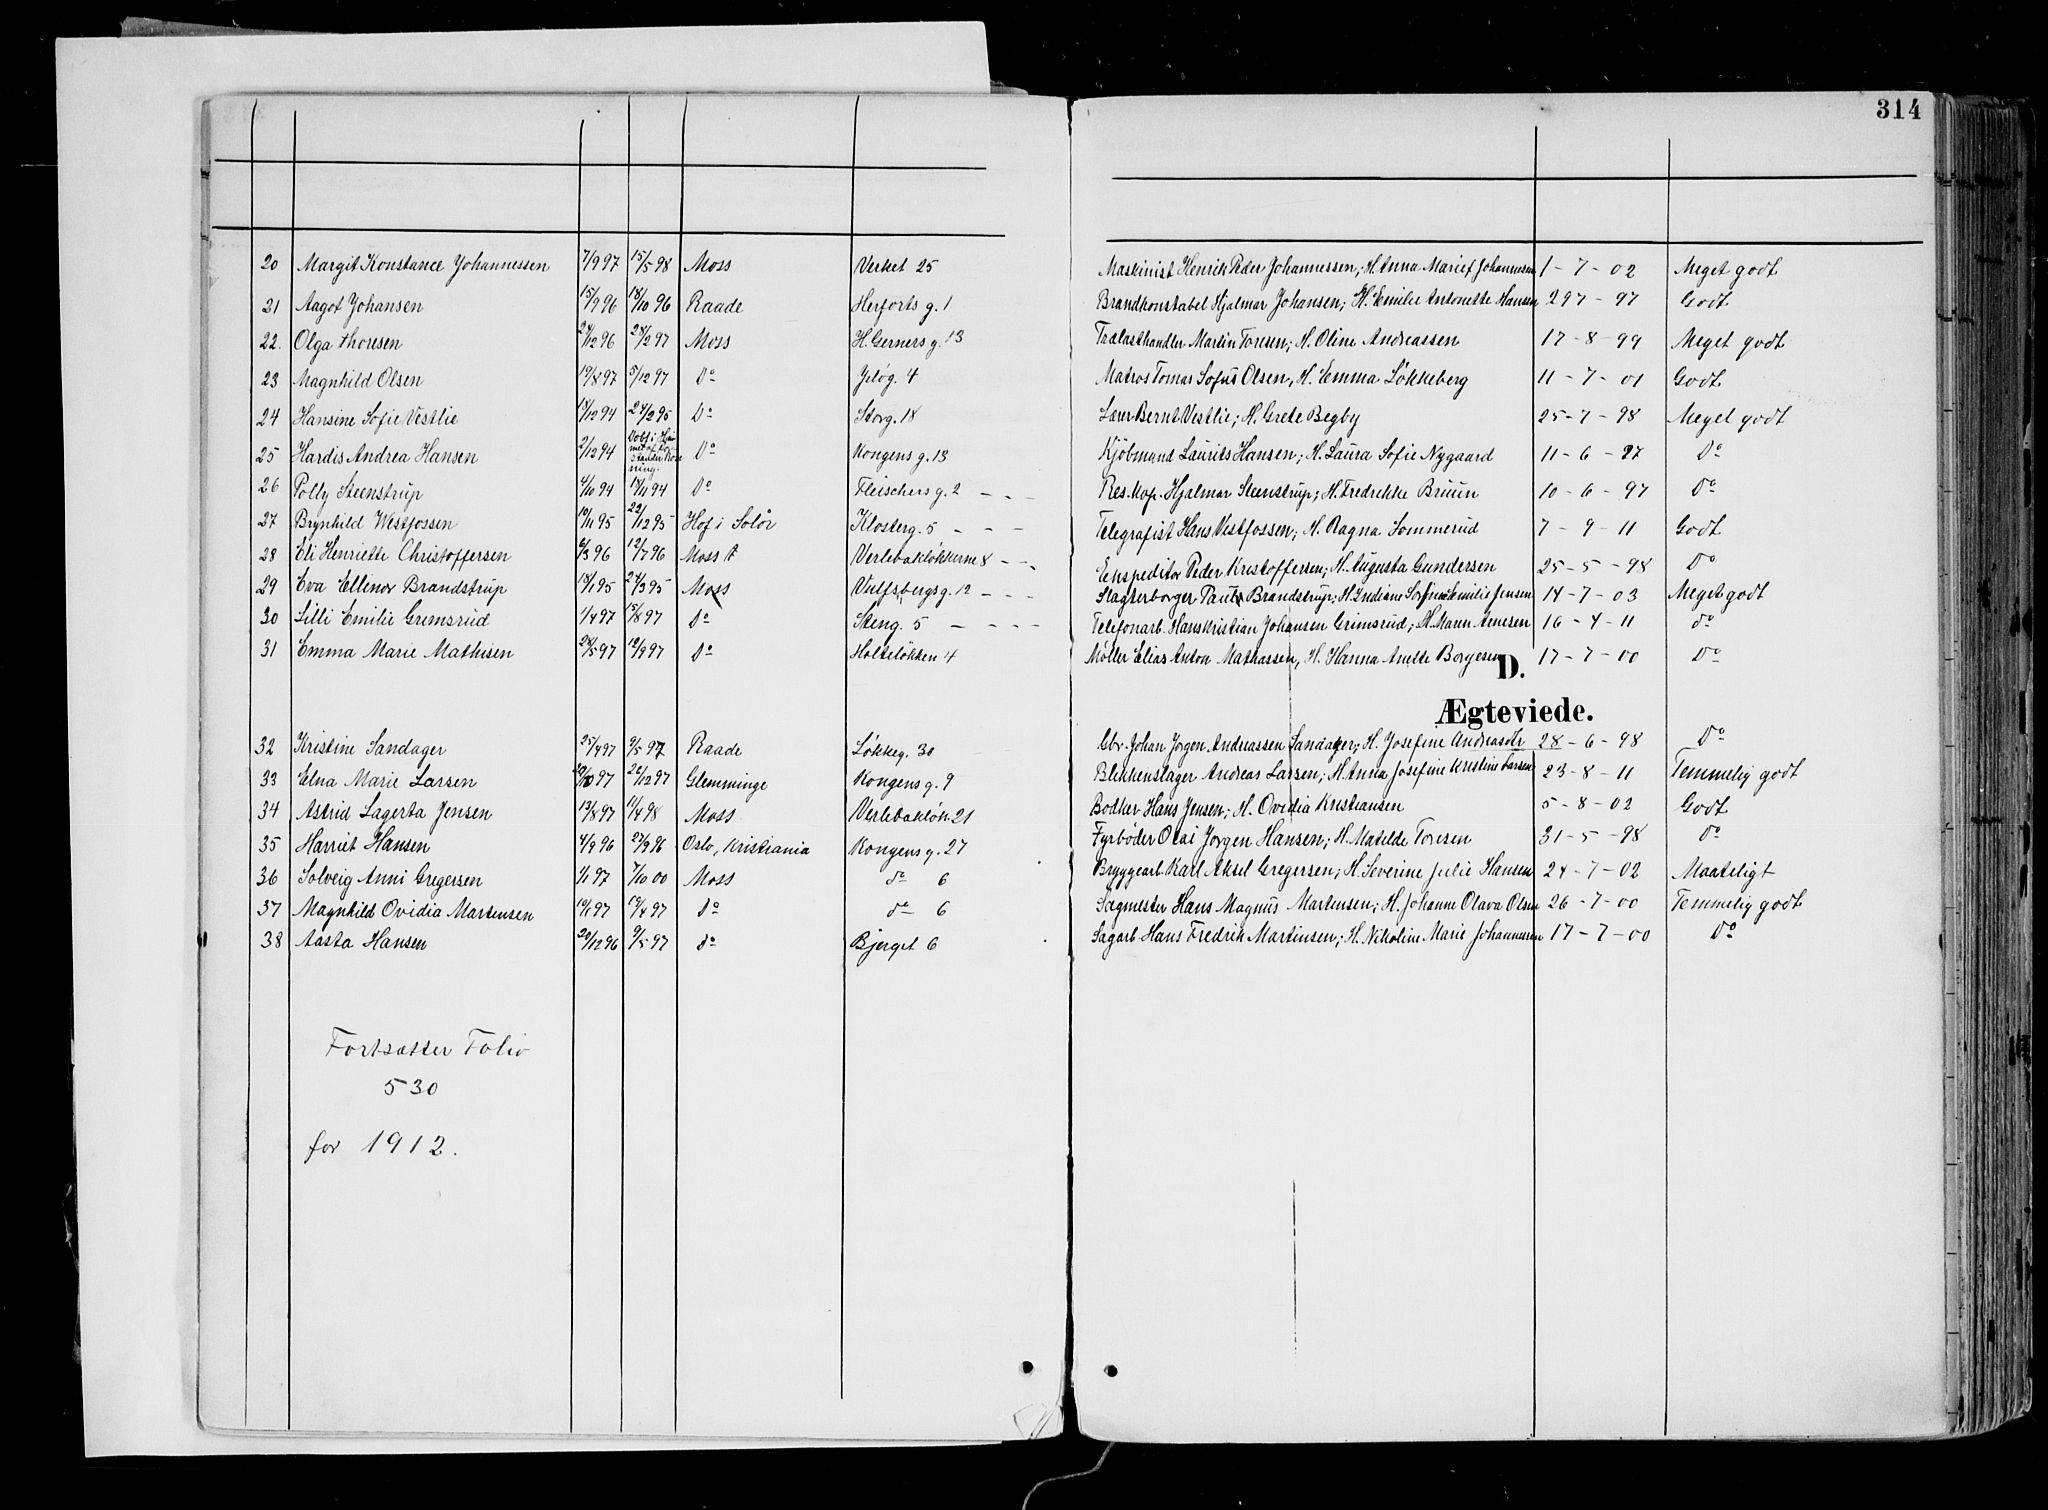 314
20 Margit Konstance Johannessen 7/9 97 15/5 98 Moss Verket 25 Maskinist Henrik Peder Johannessen; H. Anna Marie Johannesen 1-7-02 Meget godt
21 Aagot Johansen 15/9 96 18/10 96 Raade Herforts g. 1 Brandkonstabel Hjalmar Johansen; H. Emilie Antonette Hansen 297-97 Godt
22. Olga Thoresen 24/12 96 28/2 97 Moss H. Gerners g. 13 Trælasthandler Martin Toresen; H. Oline Andreassen 17-8-99 Meget godt
23 Magnhild Olsen 19/8 97 5/12 97 Do Jeløg. 4 Matros Tomas Sofus Olsen, H. Emma Løkkeberg 11-7-01 Godt
24 Hansine Sofie Vestlie 18/12 94 24/2 95 Do Storg. 18 Lærer Bernt Vestlie; H. Grete Begby 25-7-98 Meget godt
25 Hardis Andrea Hansen 2/12 94 Do Kongens g. 13 Kjøbmand Laurits Hansen; H. Laura Sofie Nygaard 11-6-97 Do
26 Polly Steenstrup 4/10 94 18/11 94 Do Fleischers g. 2 - - - Res. kap. Hjalmar Steenstrup; H. Fredrikke Bruun 10-6-97 Do
27 Brynhild Westfossen 10/11 95 22/12 95 Hof i Solør Klosterg. 5 - - - Telegrafist Hans Vestfossen; H. Ragna Sommerud 7-9-11 Godt
28 Eli Henriette Christoffersen 6/3 96 12/7 96 Moss Verlebakløkkerne 8 - - - Ekspeditør Peder Kristoffersen; H. Augusta Gundersen 25-5-98 Do
29 Eva Ellinor Brandstrup 18/1 95 24/3 95 Moss Vulfsbergsg. 12 - - - Slagterborger Paul Brandstrup; H. Indiane Sofie Emilie Jensen 14-7-03 Meget godt
30 Lilli Emilie Gremsrud 1/4 97 15/8 97 Do Steng. 5 - - - - Telefonarb. Hans Kristian Johansen Grimsrud; H. Maren Arnesen 16-4-11 do
31 Emma Marie Mathisen 28/5 97 12/9 97 Do Holteløkken 4 Møller Elias Anton Mathassen, H. Hanna Anette Borgesen 17-7-00 Do
D.
Ægteviede.
32 Kristine Sandager 25/4 97 9/5 97 Raade Løkkeg. 30 Gbr. Johan Jørgen Andreassen Sandager; H. Josefine Andreasdtr 28-6-98 Do
33 Elna Marie Larsen 20/10 97 26/12 97 Glemminge Kongens g. 9 Blikkenslager Andreas Larsen; H. Anna Josefine Kristine Larsen 23-8-11 Temmelig godt
34 Astrid Lagerta Jensen 13/8 97 11/4 98 Moss Verlebakløk. 21 Bødker Hans Jensen; H. Ovidia Kristiansen 5-8-02 Godt
35 Harriet Hansen 4/9 96 27/9 96 Oslo, Kristiania Kongens g. 27 Fyrbøder Olai Jørgen Hansen; H. Matilde Toresen 31-5-98 Do
36 Solveig Anni Gregersen 1/1 97 7/10 00 Moss do 6 Bryggearb. Karl Aksel Gregersen; H. Severine Julie Hansen 24-7-02 Maateligt
37 Magnhild Ovidia Martensen 10/1 97 19/4 97 do do 6 Sagmester Hans Magnus Martensen; H. Johanne Olava Olsen 26-7-00 Temmelig godt
38 Aasta Hansen 20/12 96 9/5 97 do Bjerget 6 Sagarb. Hans Fredrik Martinsen; H. Nikoline Marie Johannesen 17-7-00 Do
Fortsætter Folio
530
for 1912.